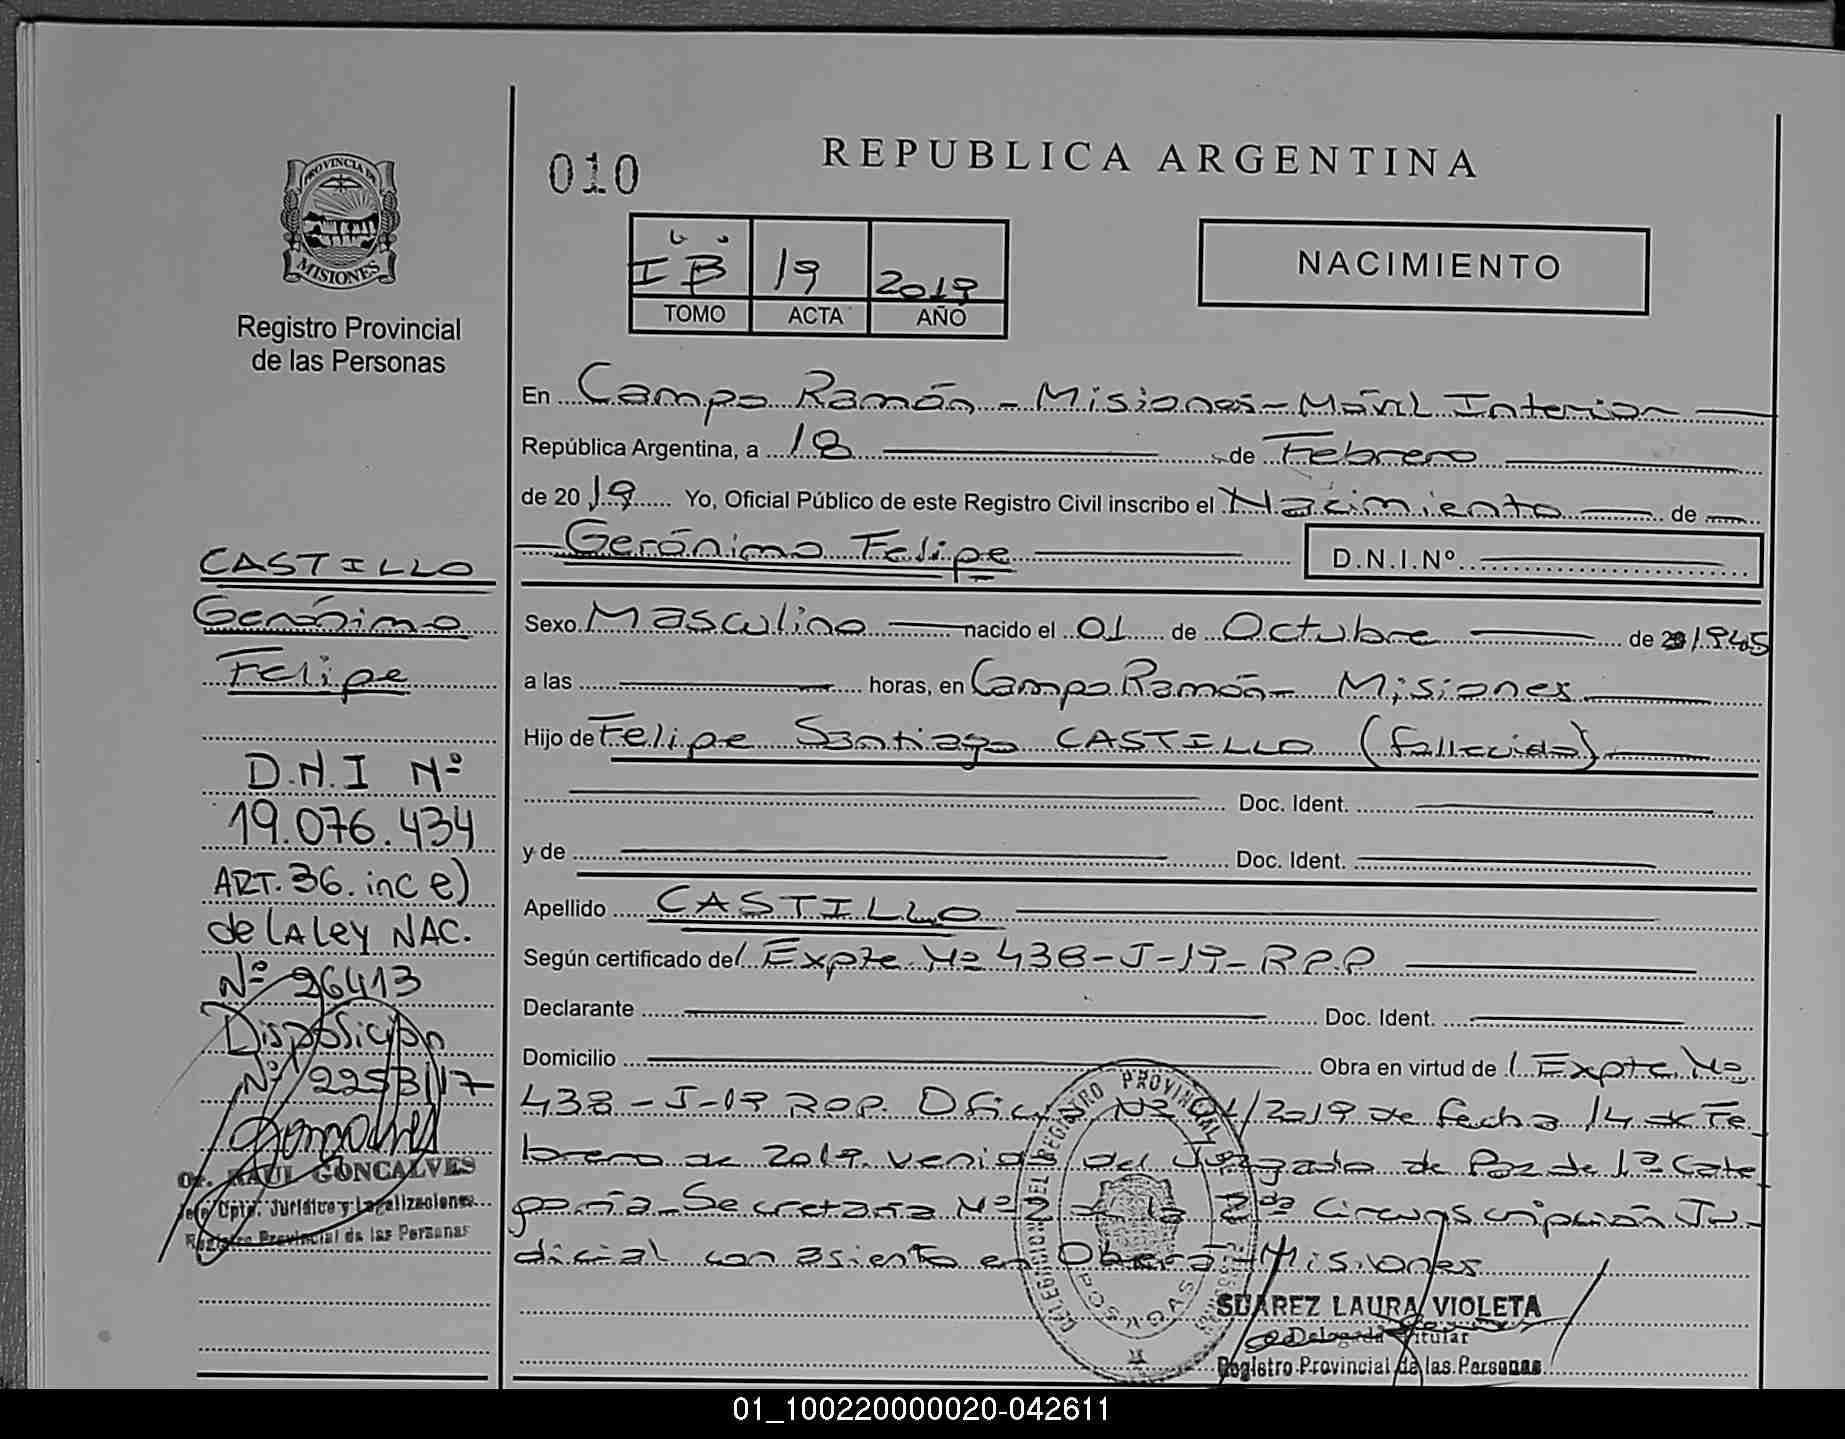 PROVINCIA DE
MISIONES
Registro Provincial
de las Personas
CASTILLO
Gerónimo
Felipe
D.N.I Nº
19.076.434
ART. 36. inc e)
de LA Ley NAC.
Nº 26413
Disposición
Nº 2253/17
Dr. RAUL GONCALVES
Jefe Dpto. Jurídico y Legalizaciones
Registro Provincial de las Personas
010
REPUBLICA ARGENTINA
I B 19 2019
TOMO ACTA AÑO
NACIMIENTO
En Campo Ramón - Misiones - Móvil Interior
República Argentina, a 18 de Febrero
de 2019 Yo, Oficial Público de este Registro Civil inscribo el Nacimiento de
Gerónimo Felipe D.N.I.Nº
Sexo Masculino nacido el 01 de Octubre de 1945
a las horas, en Campo Ramón - Misiones
Hijo de Felipe Santiago CASTILLO (fallecido)
Doc. Ident.
y de Doc. Ident.
Apellido CASTILLO
Según certificado del Expte. Nº 438-J-19-R.P.P
Declarante Doc. Ident.
Domicilio Obra en virtud de l Expte. Nº
438-J-19 R.P.P. Oficio Nº /2019 de fecha 14 de Fe
brero de 2019 venido del Juzgado de Paz de 1ª Cate
goría - Secretaria Nº 2 de la 2da Circunscripción Ju
dicial con asiento en Oberá - Misiones
DELEGACION DEL REGISTRO PROVINCIAL
SUAREZ LAURA VIOLETA
Delegada Titular
Registro Provincial de las Personas
01_100220000020-042611